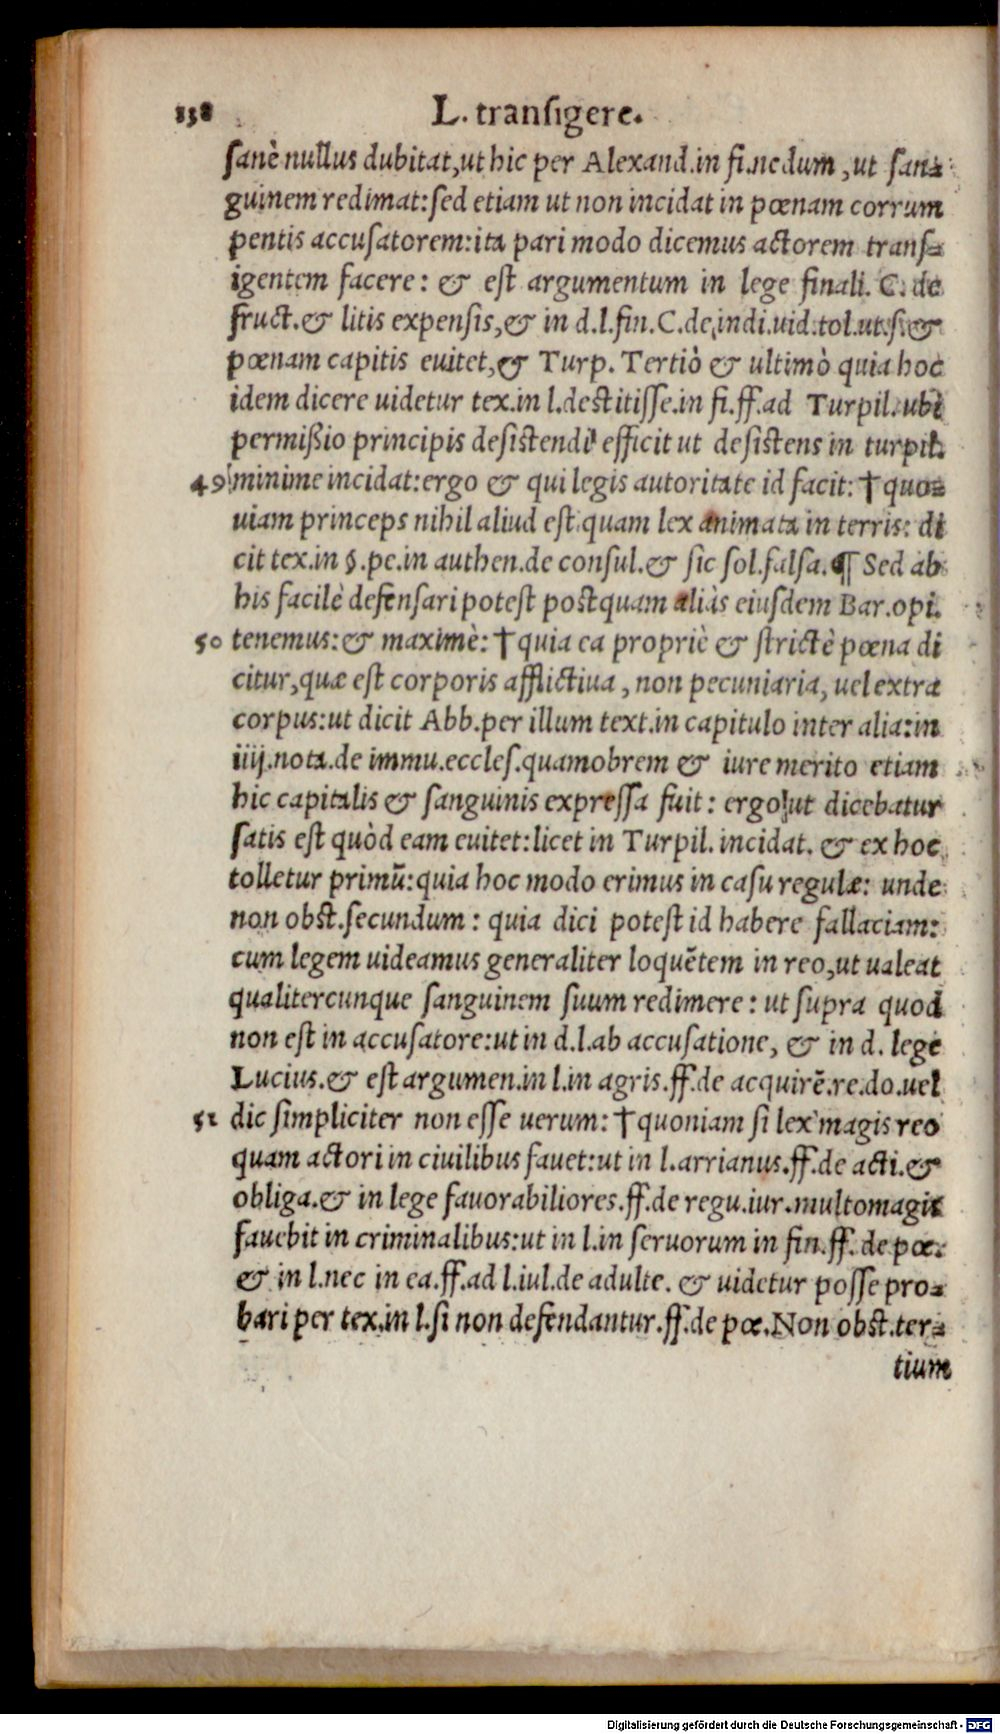 138 L. transigere.
sanè nullus dubitat, ut hic per Alexand. in fi. nedum, ut san⸗
guinem redimat: sed etiam ut non incidat in pœnam corrum
pentis accusatorem: ita pari modo dicemus actorem trans⸗
igentem facere: & est argumentum in lege finali. C. de
fruct. & litis expensis, & in d.l. fin. C. de indi. uid. tol. ut. s. &
pœnam capitis euitet, & Turp. Tertiò & ultimò quia hoc
idem dicere uidetur tex. in l. destitisse. in fi. ff. ad Turpil. ubi
permißio principis desistendi efficit ut desistens in turpil.
49 minime incidat: ergo & qui legis autoritate id facit: † quo⸗
niam princeps nihil aliud est quam lex animata in terris: di
cit tex. in §. pe. in authen. de consul. & sic sol. falsa. ¶ Sed ab
his facilè defensari potest postquam aliàs eiusdem Bar. opi.
50 tenemus: & maximè: † quia ea propriè & strictè pœna di
citur, quæ est corporis afflictiua, non pecuniaria, uel extra
corpus: ut dicit Abb. per illum text. in capitulo inter alia: in
iiij. nota. de immu. eccles. quamobrem & iure merito etiam
hic capitalis & sanguinis expressa fuit: ergo ut dicebatur
satis est quòd eam euitet: licet in Turpil. incidat. & ex hoc
tolletur primũ: quia hoc modo erimus in casu regulæ: unde
non obst. secundum: quia dici potest id habere fallaciam:
cum legem uideamus generaliter loquẽtem in reo, ut ualeat
qualitercunque sanguinem suum redimere: ut supra quod
non est in accusatore: ut in d.l. ab accusatione, & in d. lege
Lucius. & est argumen. in l. in agris. ff. de acquirẽ. re. do. uel
51 dic simpliciter non esse uerum: † quoniam si lex magis reo
quam actori in ciuilibus fauet: ut in l. arrianus. ff. de acti. &
obliga. & in lege fauorabiliores. ff. de regu. iur. multomagis
fauebit in criminalibus: ut in l. in seruorum in fin. ff. de pœ.
& in l. nec in ea. ff. ad l. iul. de adulte. & uidetur posse pro⸗
bari per tex. in l. si non defendantur. ff. de pœ. Non obst. ter⸗
tium
Digitalisierung gefördert durch die Deutsche Forschungsgemeinschaft - DFG